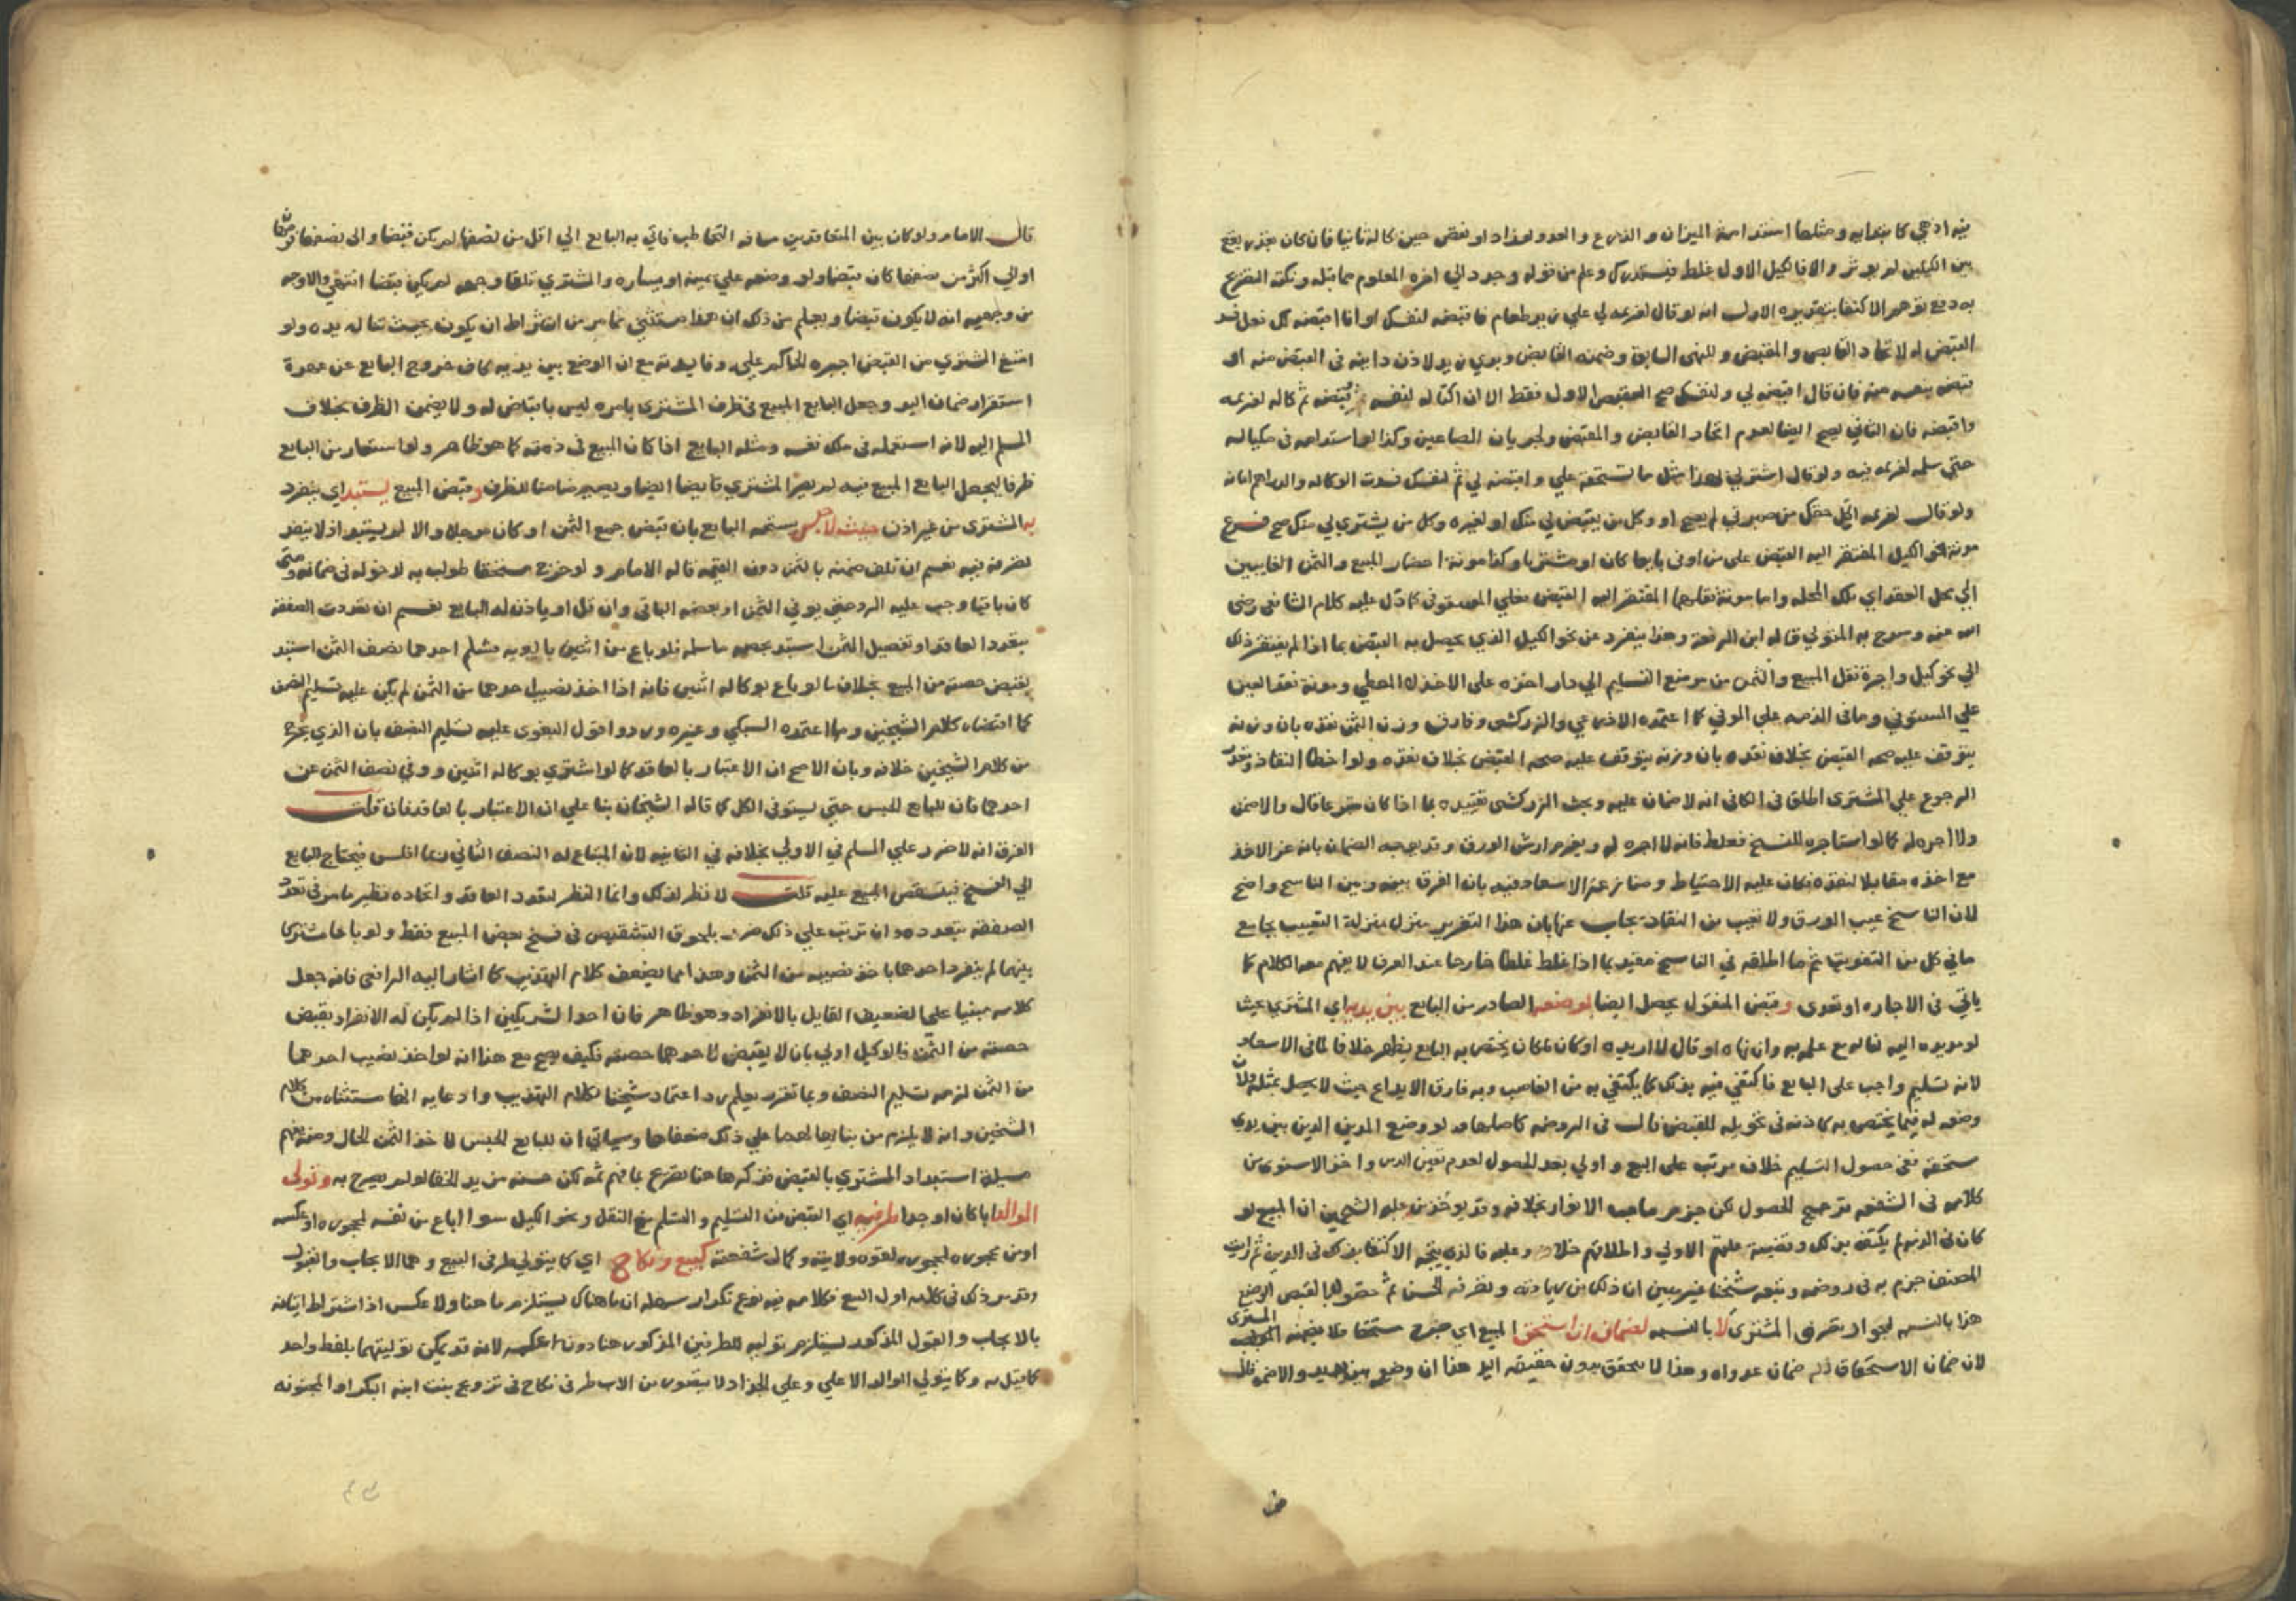 فيه اذ هي كابتدايه ومثلها استدامة الميزان والذراع والعدد ولو زاد او نقص حين كاله ثانيا فان كان بقدر يقع
بين الكيلين لم يوثر والا فالكيل الاول غلط فيستدرك وعلم من قوله وجود الي اخره المعلوم مما قبله ونكتة التفريع
به دفع توهم الاكتفا بتقديره الاول انه لو قال لغريمه لي علي زيد طعام فاقبضه لنفسك او انا اقبضه لك فعل فسد
القبض له لاتحاد القابض والمقبض وللنهي السابق وضمنه القابض وبري زيد لاذن داينه في القبض منه او
قبضه بنفسه منه فان قال اقبضه لي ولنفسك صح القبض الاول فقط الا ان اكتاله لنفسه وقبضه ثم كاله لغريمه
واقبضه فان الثاني يصح ايضا لعدم اتحاد القابض والمقبض ولجريان الصاعين وكذا لو استدامه في مكياله
حتي سلمه لغريمه فيه ولو قال اشتر لي بهذا مثل ما تستحقه علي واقبضه لي ثم لنفسك فسدت الوكاله والدراهم امانه
ولو قال لغريمه اكتل حقك من صبرتي لم يصح او وكل من يقبض لي منك او لغيره وكل من يشتري لي منك صح فرع
مونة نحو الكيل المفتقر اليه القبض على من اوفى بايعا كان او مشتريا وكذا مونة احضار المبيع والثمن الغايبين
الي محل العقد اي تلك المحله واما مونة نقلهما المفتقر اليه القبض فعلي المستوفي كما دل عليه كلام الشافعي رضي
الله عنه وصرح به المتولي قاله ابن الرفعة وهذا ينفرد عن نحو الكيل الذي يحصل به القبض بما اذا لم يفتقر ذلك
الي نحو كيل واجرة نقل المبيع والثمن من موضع التسليم الي دار اخذه على الاخذ لا المعطي ومونة نقد العين
علي المستوفي وما في الذمه علي الموفي كما اعتمده الاذرعي والزركشي وفارق وزن الثمن نقده بان وزنه
يتوقف عليه صحه القبض بخلاف نقده ولو اخطا النقاد وتعذر
الرجوع علي المشترى اطلق في الكافي انه لا ضمان عليه وبحث الزركشي تقييده بما اذا كان متبرعا قال والا ضمن
ولا اجره له كما لو استاجره للنسخ فغلط فانه لا اجره له ويغرم ارش الورق وقد يوجه الضمان بانه غر الاخذ
مع اخذه مقابلا لنقده فكان عليه الاحتياط ومنازعة الاسعاد فيه بان الفرق بينه وبين الناسخ واضح
لان الناسخ عيب الورق ولا تعيب من النقاد يجاب عنها بان هذا التغرير منزل منزلة التعييب بجامع
ما في كل من التفويت ثم ما اطلقه في الناسخ مقيد بما اذا غلط غلطا خارجا عند العرف لا يفهم معه الكلام كما
ياتي في الاجاره او تعدى وقبض المنقول يحصل ايضا لوضعه الصادر من البايع بين يديه اي المشتري بحيث
لو مد يده اليه لناله مع علمه به وان نهاه او قال لا اريده او كان المكان يختص به البايع يظهر خلافا لما في الاسعاد
لانه تسليم واجب على البايع فاكتفي فيه بذلك كما يكتفي به من الغاصب وبه فارق الايداع حيث لا يحصل بمثله ولان
وضعه له فيما يختص به كاذنه في تحويله للقبض قال في الروضه كاصلها ولو وضع المدين الدين بين يدي
مستحقه ففي حصول التسليم خلاف مرتب على البيع واولي بعدم الحصول لعدم تعين الدين واخذ الاسنوي من
كلامه في الشفعه ترجيح الحصول لكن جزم صاحب الانوار بخلافه وقد يوخذ من علة الشيخين ان المبيع لو
كان في الذمه لم يكتف بذلك وقضية علتهم الاولي واطلاقهم خلافه وعليه فالذي يتجه الاكتفا بذلك في الدين ثم رايت
المصنف جزم به في روضه وتبعه شيخنا غير مبين ان ذلك من زيادته وتصرفه الحسن ثم حصول القبض بالوضع
هذا بالنسبه لجواز تصرف المشتري لا بالنسبه لضمان ان استحق المبيع اي خرج مستحقا فلا يضمنه المشتري
لان ضمان الاستحقاق ضمان عدوان وهذا لا يتحقق بدون حقيقة اليد هذا ان وضع بين يديه والا ضمنه
من
قال الامام ولو كان بين المتعاقدين مسافة التخاطب فاتي به البايع الي اقل من نصفها لم يكن قبضا والى نصفها
اوالي اكثر من نصفها كان قبضا ولو وضعه علي يمينه او يساره والمشتري تلقا وجهه لم يكن قبضا انتهى والاوجه
من وجهيه انه لا يكون قبضا ويعلم من ذلك ان هذا مستثنى مما مر من اشتراط ان يكون بحيث تناله يده ولو
امتنع المشتري من القبض اجبره الحاكم عليه وفايدته مع ان الوضع بين يديه كاف خروج البايع عن عهدة
استقرار ضمان اليد وجعل البايع المبيع في ظرف المشتري بامره ليس باقباض له ولا يضمن الظرف بخلاف
المسلم اليه لانه استعمله في ملك نفسه ومثله البايع اذا كان المبيع في ذمته كما هو ظاهر ولو استعار من البايع
ظرفا ليجعل البايع المبيع فيه لم يصر المشتري قابضا ايضا ويصير ضامنا للظرف وقبض المبيع يستبد اي ينفرد
به المشتري من غير اذن حيث لا حبس يستحقه البايع بان قبض جميع الثمن او كان موجلا والا لم يستبد اذ لا ينفذ
تصرفه فيه نعم ان تلف ضمنه بالثمن دون القيمه قاله الامام ولو خرج مستحقا طولب به لدخوله في ضمانه ومتى
كان باقيا وجب عليه الرد حتي يوفي الثمن او بعضه الباقي وان قل او ياذن له البايع نعم ان تعددت الصفقة
بتعدد العاقد او تفصيل الثمن استبد بحصه ما سلمه فلو باع من اثنين مالا وبه فسلم احدهما نصف الثمن استبد
بقبض حصته من المبيع بخلاف ما لو باع بوكالة اثنين فانه اذا اخذ نصيب احدهما من الثمن لم يكن عليه تسليم النصف
كما اقتضاه كلام الشيخين ومما اعتمده السبكي وغيره وردوا قول البغوي عليه تسليم النصف بان الذي يخرج
من كلام الشيخين خلافه وبان الاصح ان الاعتبار بالعاقد كما لو اشترى بوكالة اثنين ووفي نصف الثمن عن
احدهما فان للبايع الحبس حتي يستوفي الكل كما قاله الشيخان بنا علي ان الاعتبار بالعاقد فان قلت
الفرق انه لا ضرر علي المسلم في الاولي بخلافه في الثانيه لان المبتاع له النصف الثاني ربما افلس فيحتاج البايع
الي الفسخ فيتنقص المبيع عليه قلت لا نظر لذلك وانما النظر لتعدد العاقد واتحاده نظير ما مر في تعدد
الصفقة بتعدده وان ترتب علي ذلك ضرر بلحوق التشقيص في فسخ بعض المبيع فقط ولو باعا مشتركا
بينهما لم ينفرد احدهما باخذ نصيبه من الثمن وهذا مما يضعف كلام التهذيب كما اشار اليه الرافعي فانه جعل
كلامه مبنيا علي الضعيف القايل بالانفراد وهو ظاهر فان احد الشريكين اذا لم يكن له الانفراد بقبض
حصته من الثمن فالوكيل اولي بان لا يقبض لاحدهما حصته فكيف يصح مع هذا انه لو اخذ نصيب احدهما
من الثمن لزمه تسليم النصف وبما تقرر يعلم رد اعتماد شيخنا لكلام التهذيب وادعايه انها مستثناه من كلام
الشيخين وانه لا يلزم من بنايها لها علي ذلك ضعفها وسياتي ان للبايع الحبس لاخذ الثمن الحال ومنه يفهم
مسيلة استبداد المشتري بالقبض فذكرها هنا تصريح بما فهم ثمه لكن حسنه مزيد الخفا لو لم يصرح به وتولى
الوالد ابا كان او جدا طرفيه اي القبض من التسليم والتسلم مع النقل ونحو الكيل سوا اباع من نفسه لمحجوره او عكسه
او من محجوره لمحجوره لقوة ولايته وكمال شفقته كبيع ونكاح اي كما يتولي طرفي البيع وهما الايجاب والقبول
وقد مر ذلك في كلامه اول البيع فكلامه فيه نوع تكرار سهله ان ما هناك يستلزم ما هنا ولا عكس اذ اشتراط اتيانه
بالايجاب والقبول المذكور يستلزم توليه للطرفين المذكور هنا دون عكسه لانه قد يمكن توليتهما بلفظ واحد
كما قيل به وكما يتولي الوالد الاعلي وعلي الجد اذ لا يتصور من الاب طرفي نكاح في تزويج بنت ابنه البكر او المجنونه